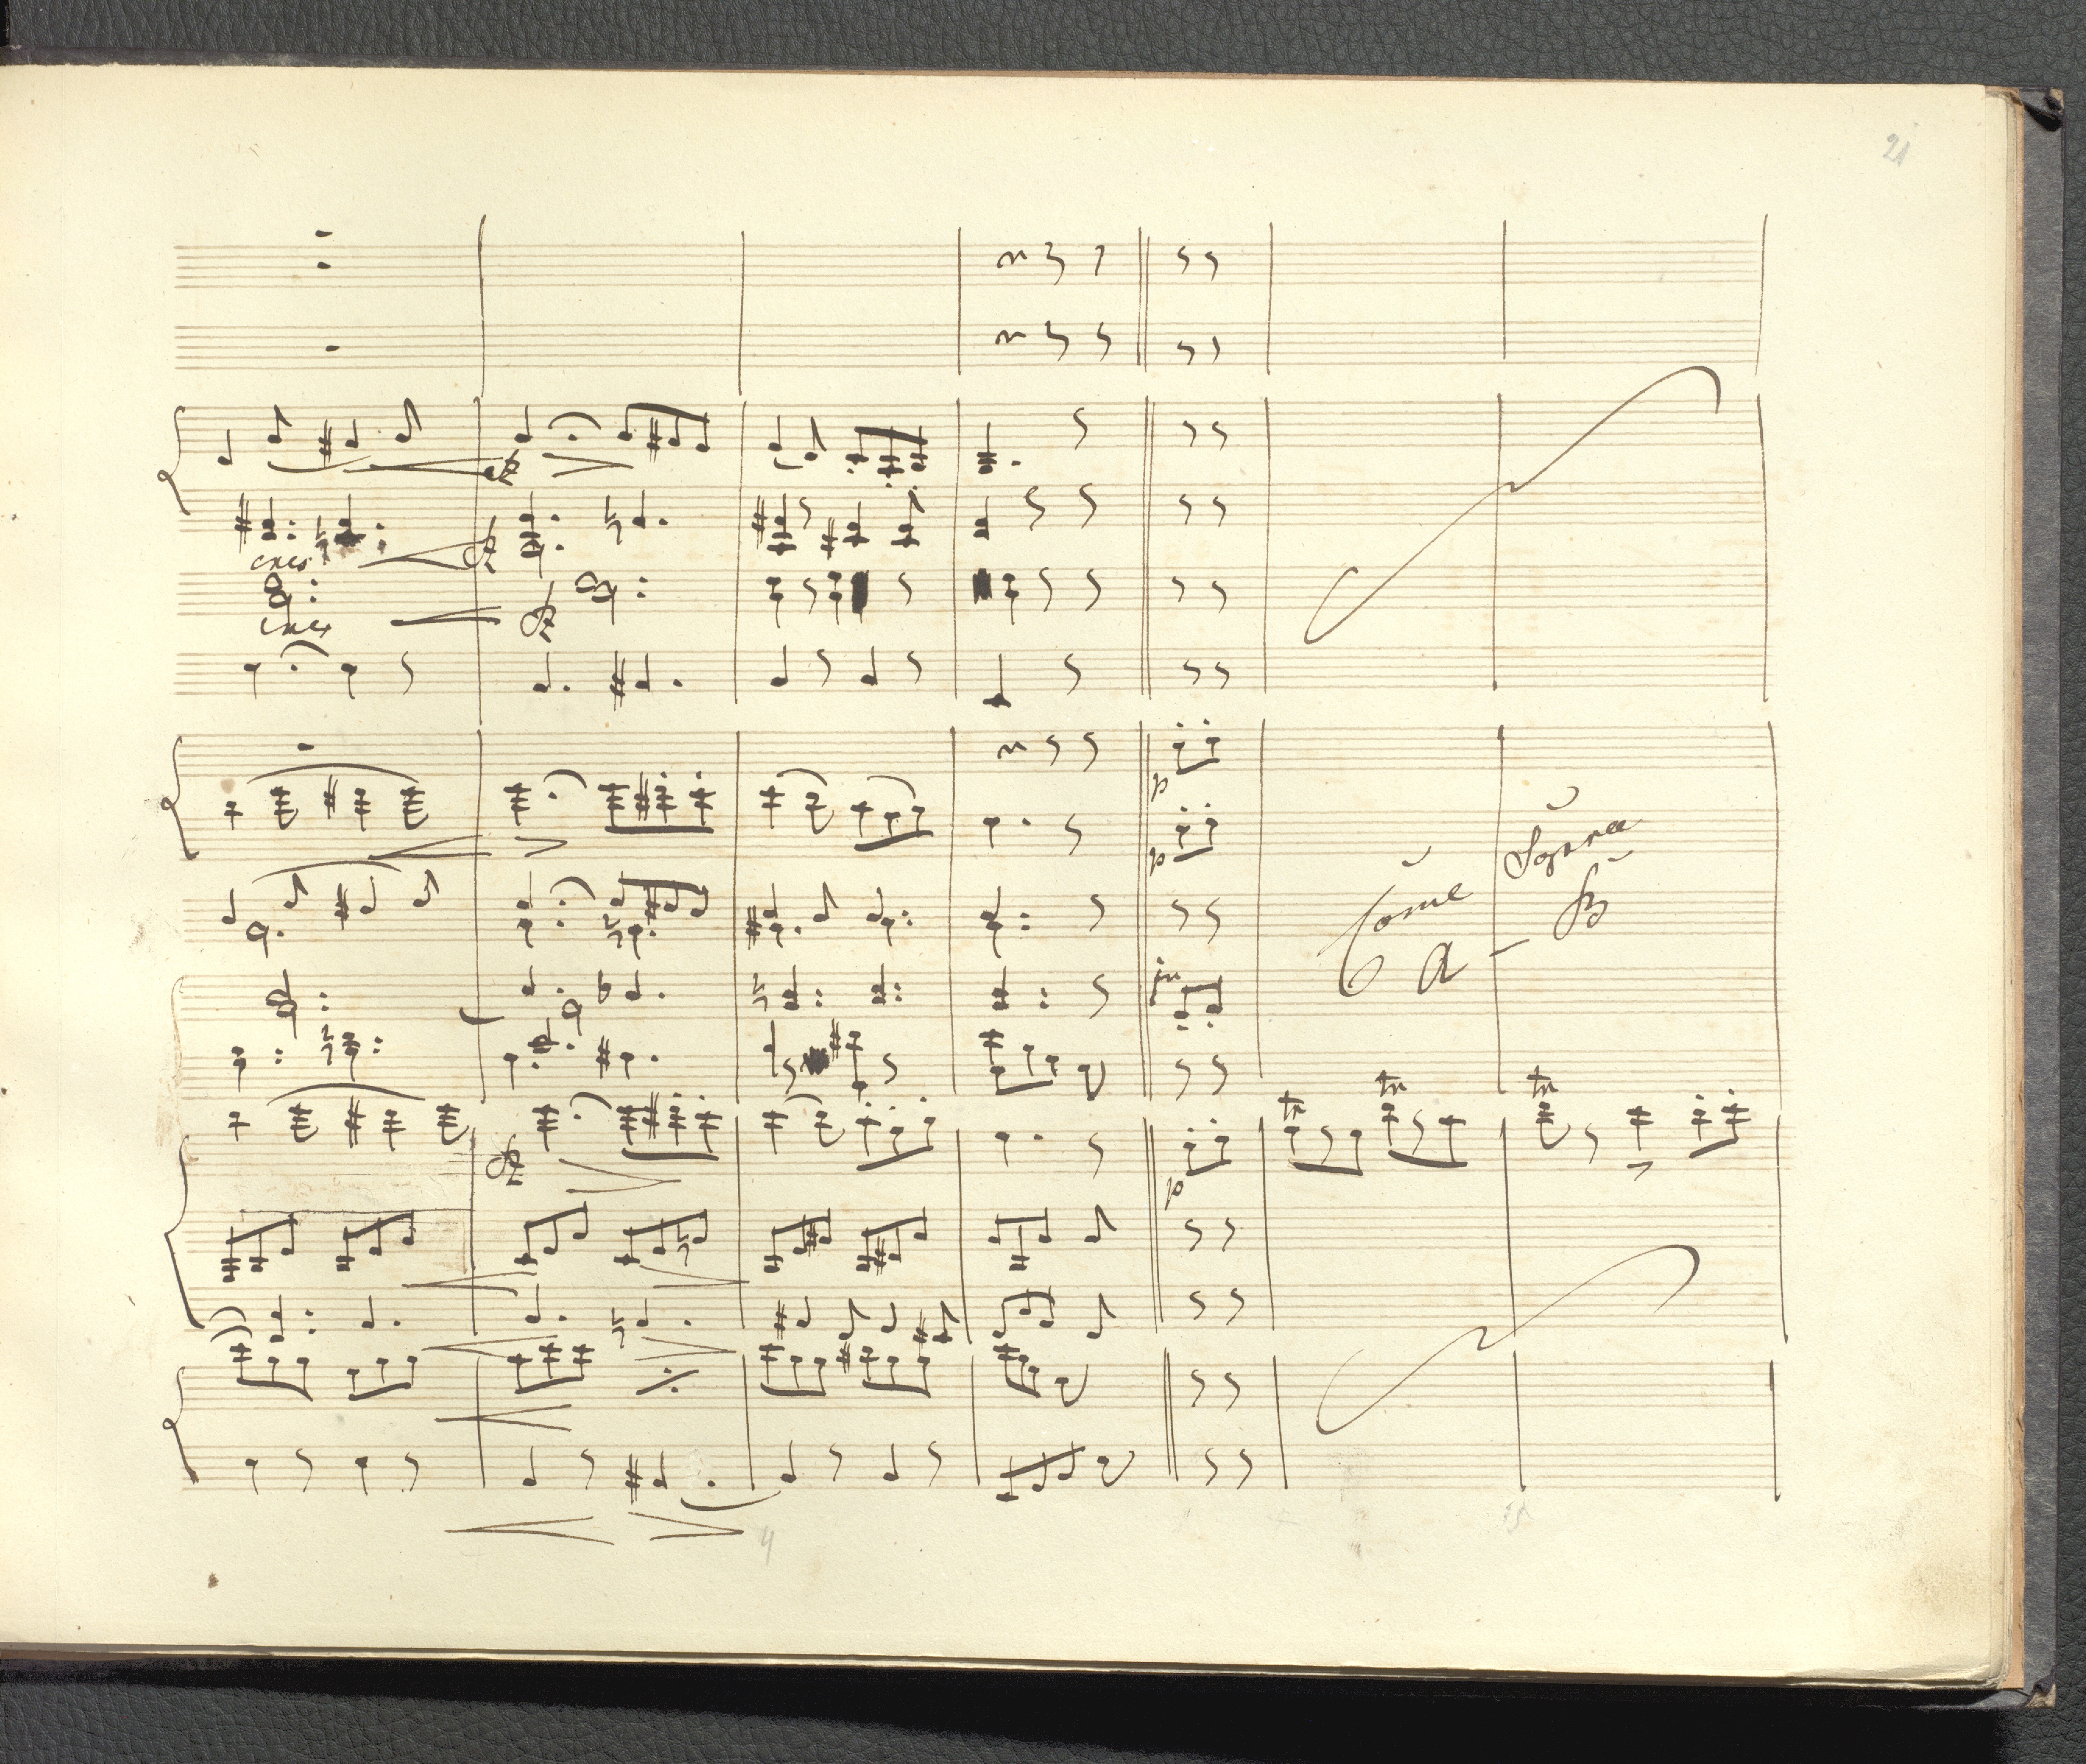 21
cres
cres
p
p
Come
Sopra
A - B
tr tr tr
p
4